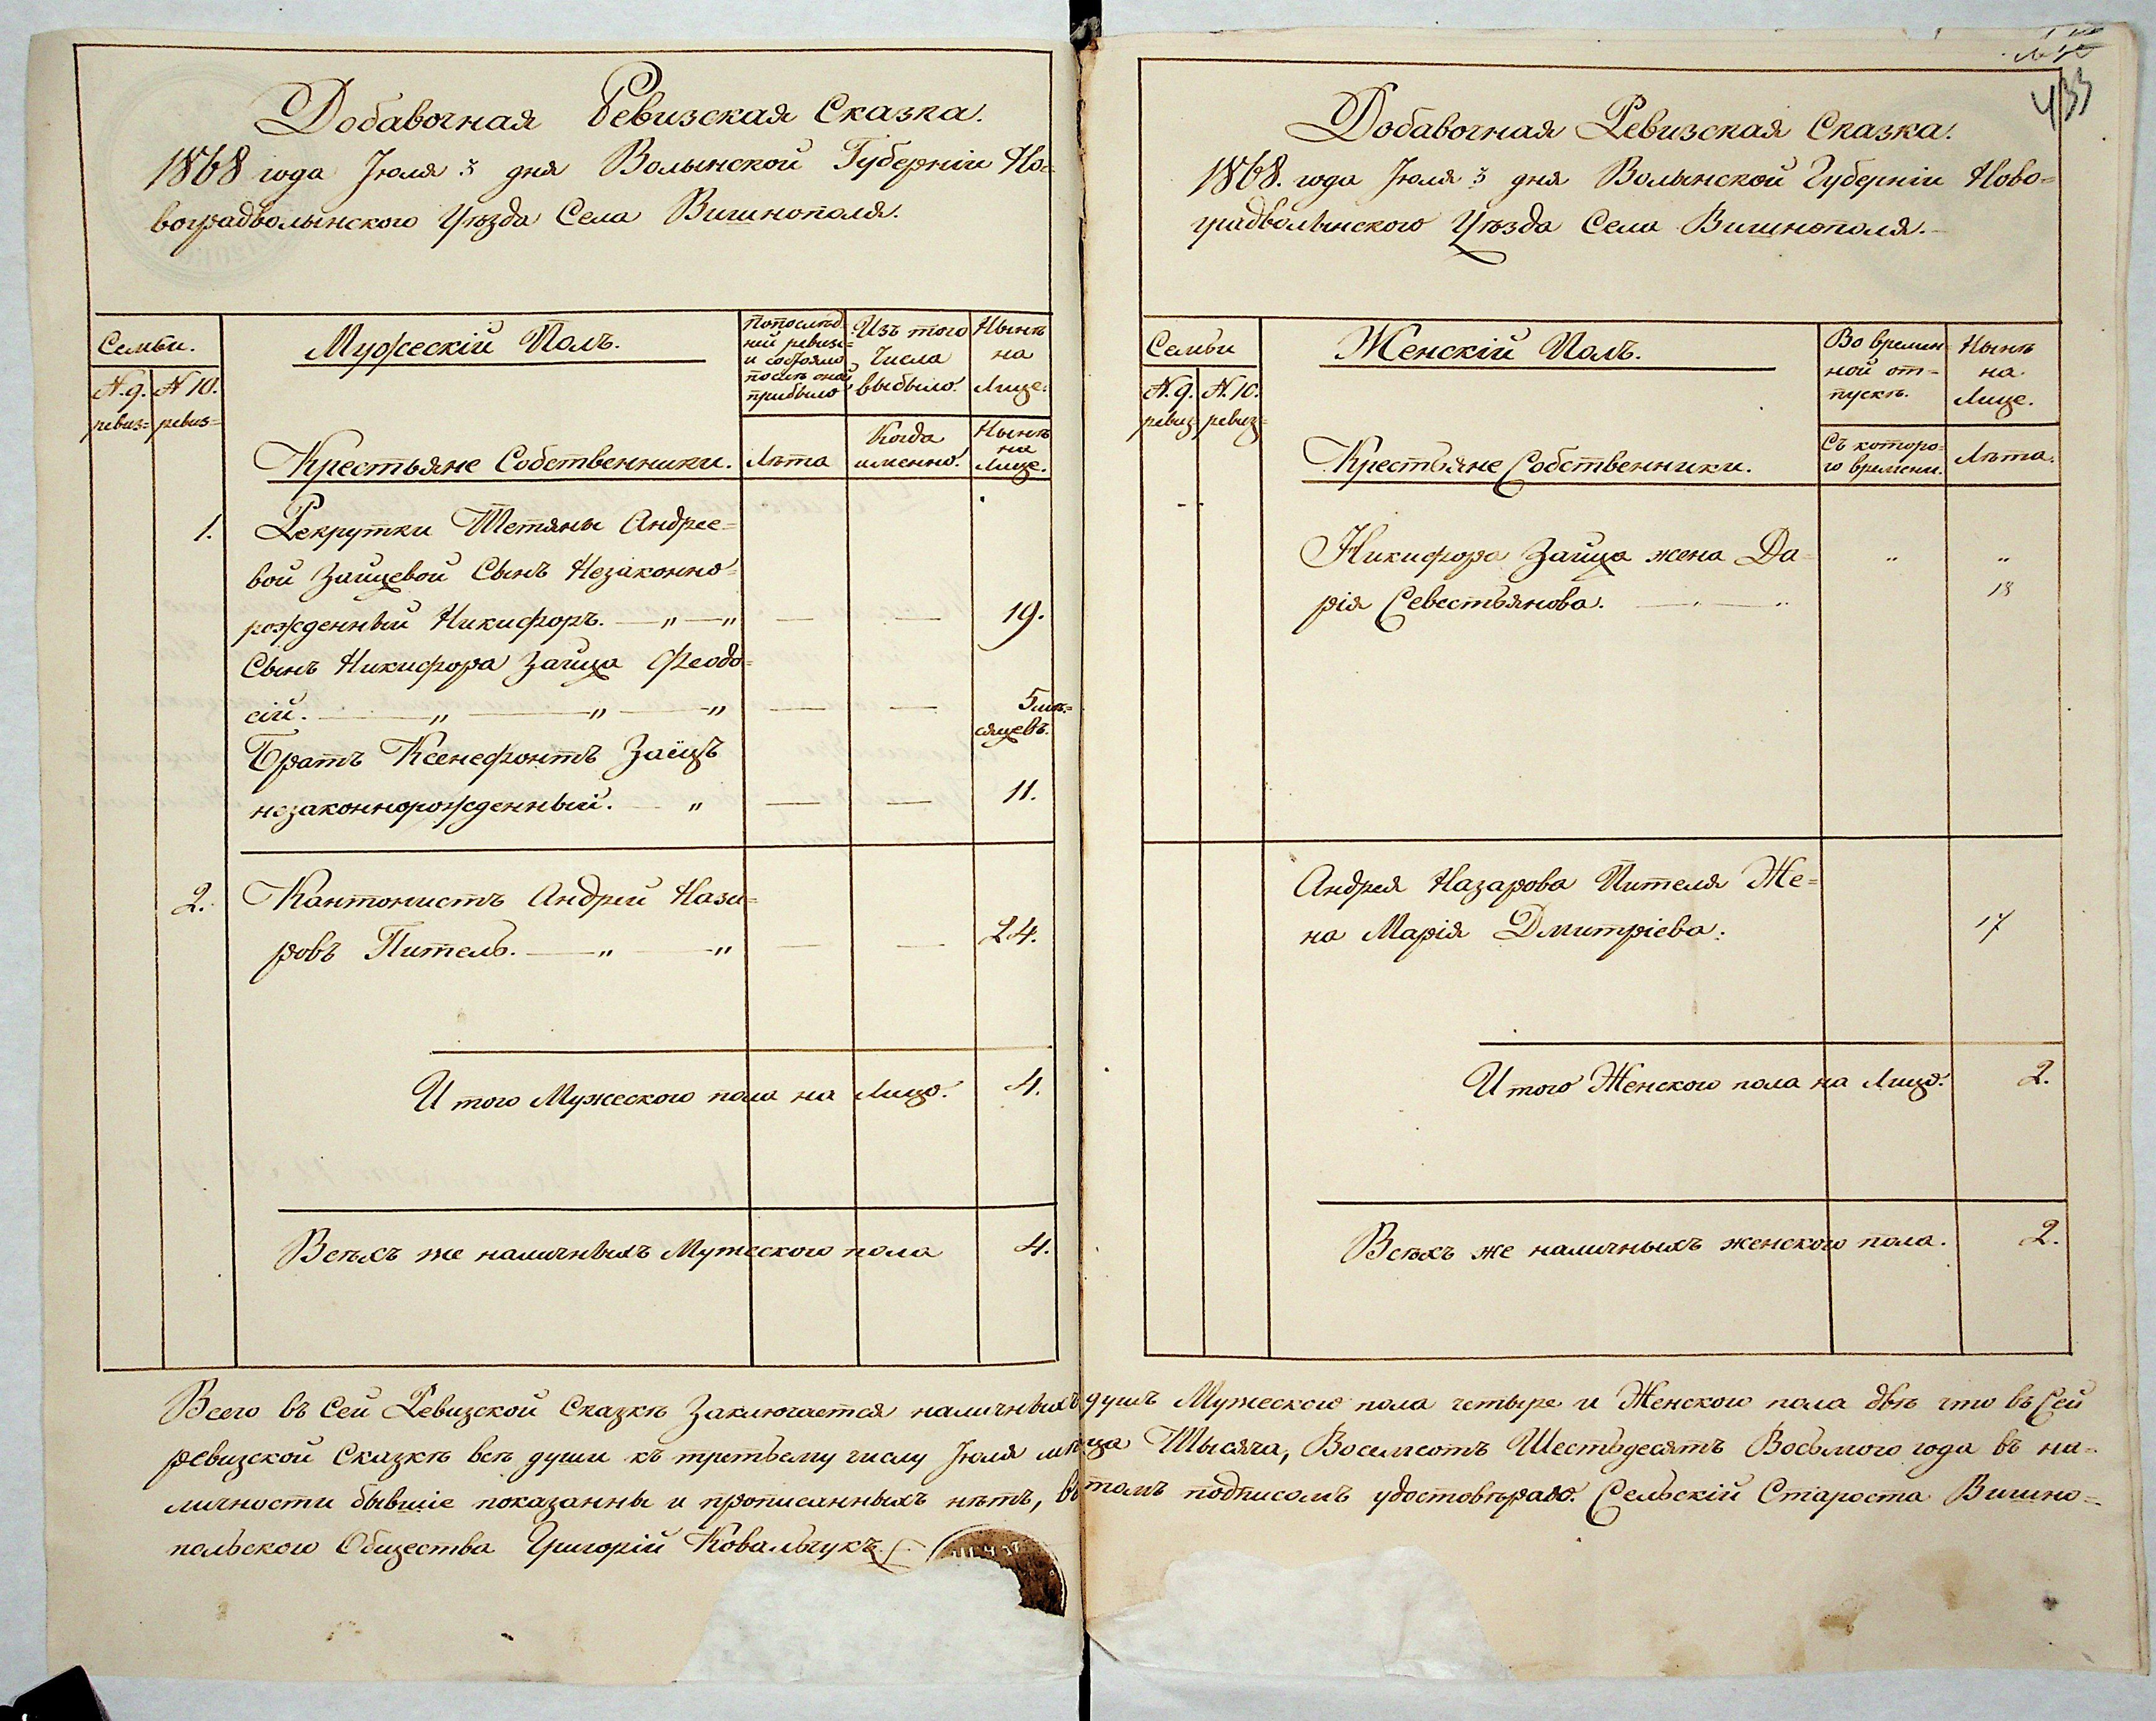 Добавочная Ревизская Сказка.
1868 года Июля 3 дня Волынской Губерніи Но=
воградволынского Уѣзда Села Вишнополя.
Семьи.
N. 9. ревиз=
N 10. ревиз=
Мужескій Полъ.
Крестьяне Собственники.
По послѣд-
ней ревизіи
и состояло
послѣ оной
прибыло
Лѣта
Изъ того
Числа
выбыло.
Когда
именно.
Нынѣ
на
Лице.
Нынѣ
на
Лице.
1.
Рекрутки Тетяны Андрее=
вой Зайцевой Сынъ Незаконно=
рожденный Никифоръ. 19.
Сынъ Никифора Зайца Феодо=
сій. 5 мѣ=
сяцевъ.
Братъ Ксенефонтъ Заіцъ
незаконнорожденный. 11.
2.
Кантонистъ Андрей Наза=
ровъ Питель. 24.
И того Мужеского пола на Лицо. 4.
Всѣхъ же наличныхъ Мужеского пола 4.
433
Добавочная Ревизская Сказка.
1868. года Июля 3 дня Волынской Губерніи Ново=
градволынского Уѣзда Села Вишнополя.
Семьи
N. 9. ревиз
N. 10. ревиз=
Женскій Полъ.
Крестьяне Собственники.
Во времен=
ной от=
лускѣ.
Съ которо=
го времени.
Нынѣ
на
Лице.
Лѣта.
Никифора Зайца жена Да=
рія Севестьянова. 18
Андрея Назарова Пителя Же=
на Марія Дмитріева. 17
И того Женского пола на Лицо. 2.
Всѣхъ же наличныхъ женского пола. 2.
Всего въ Сей Ревизской Сказкѣ Заключается наличныхъ душъ Мужеского пола четыре и Женского пола двѣ что въ Сей
ревизской Сказкѣ всѣ души къ третьему числу Июля мѣ-ца Тысяча, Восемсотъ Шестьдесятъ Восьмого года въ на=
личности бывшіе показанны и прописанныхъ нѣтъ, въ томъ подписомъ удостовѣраю. Сельскій Староста Вишно=
польского Общества Григорій Ковальчукъ